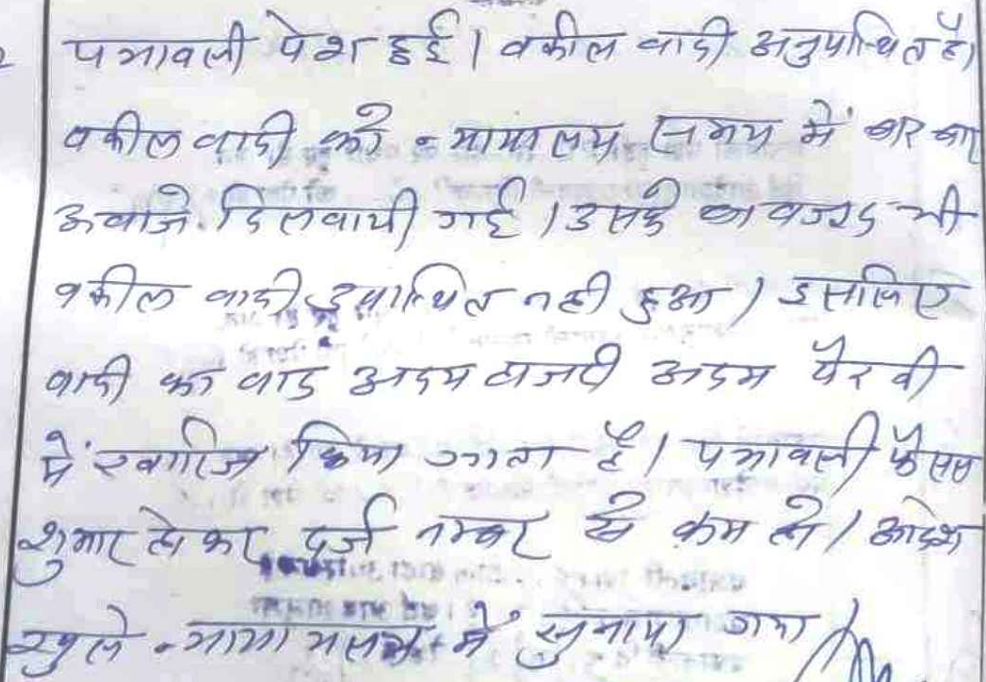 पत्रावली पेश हुई। वकील वादी अनुपस्थित है।
वकील वादी को न्यायालय समय में बार बार
अवाजे दिलवायी गई। उसके बावजूद भी
वकील वादी उपस्थित नही हुआ। इसलिए
वादी का वाद अदम हाजरी अदम पैरवी
में खारिज किया जाता है। पत्रावली फैसल
शुमार होकर दर्ज नम्बर से कम हो। आदेश
खुले न्यायालय में सुनाया गया